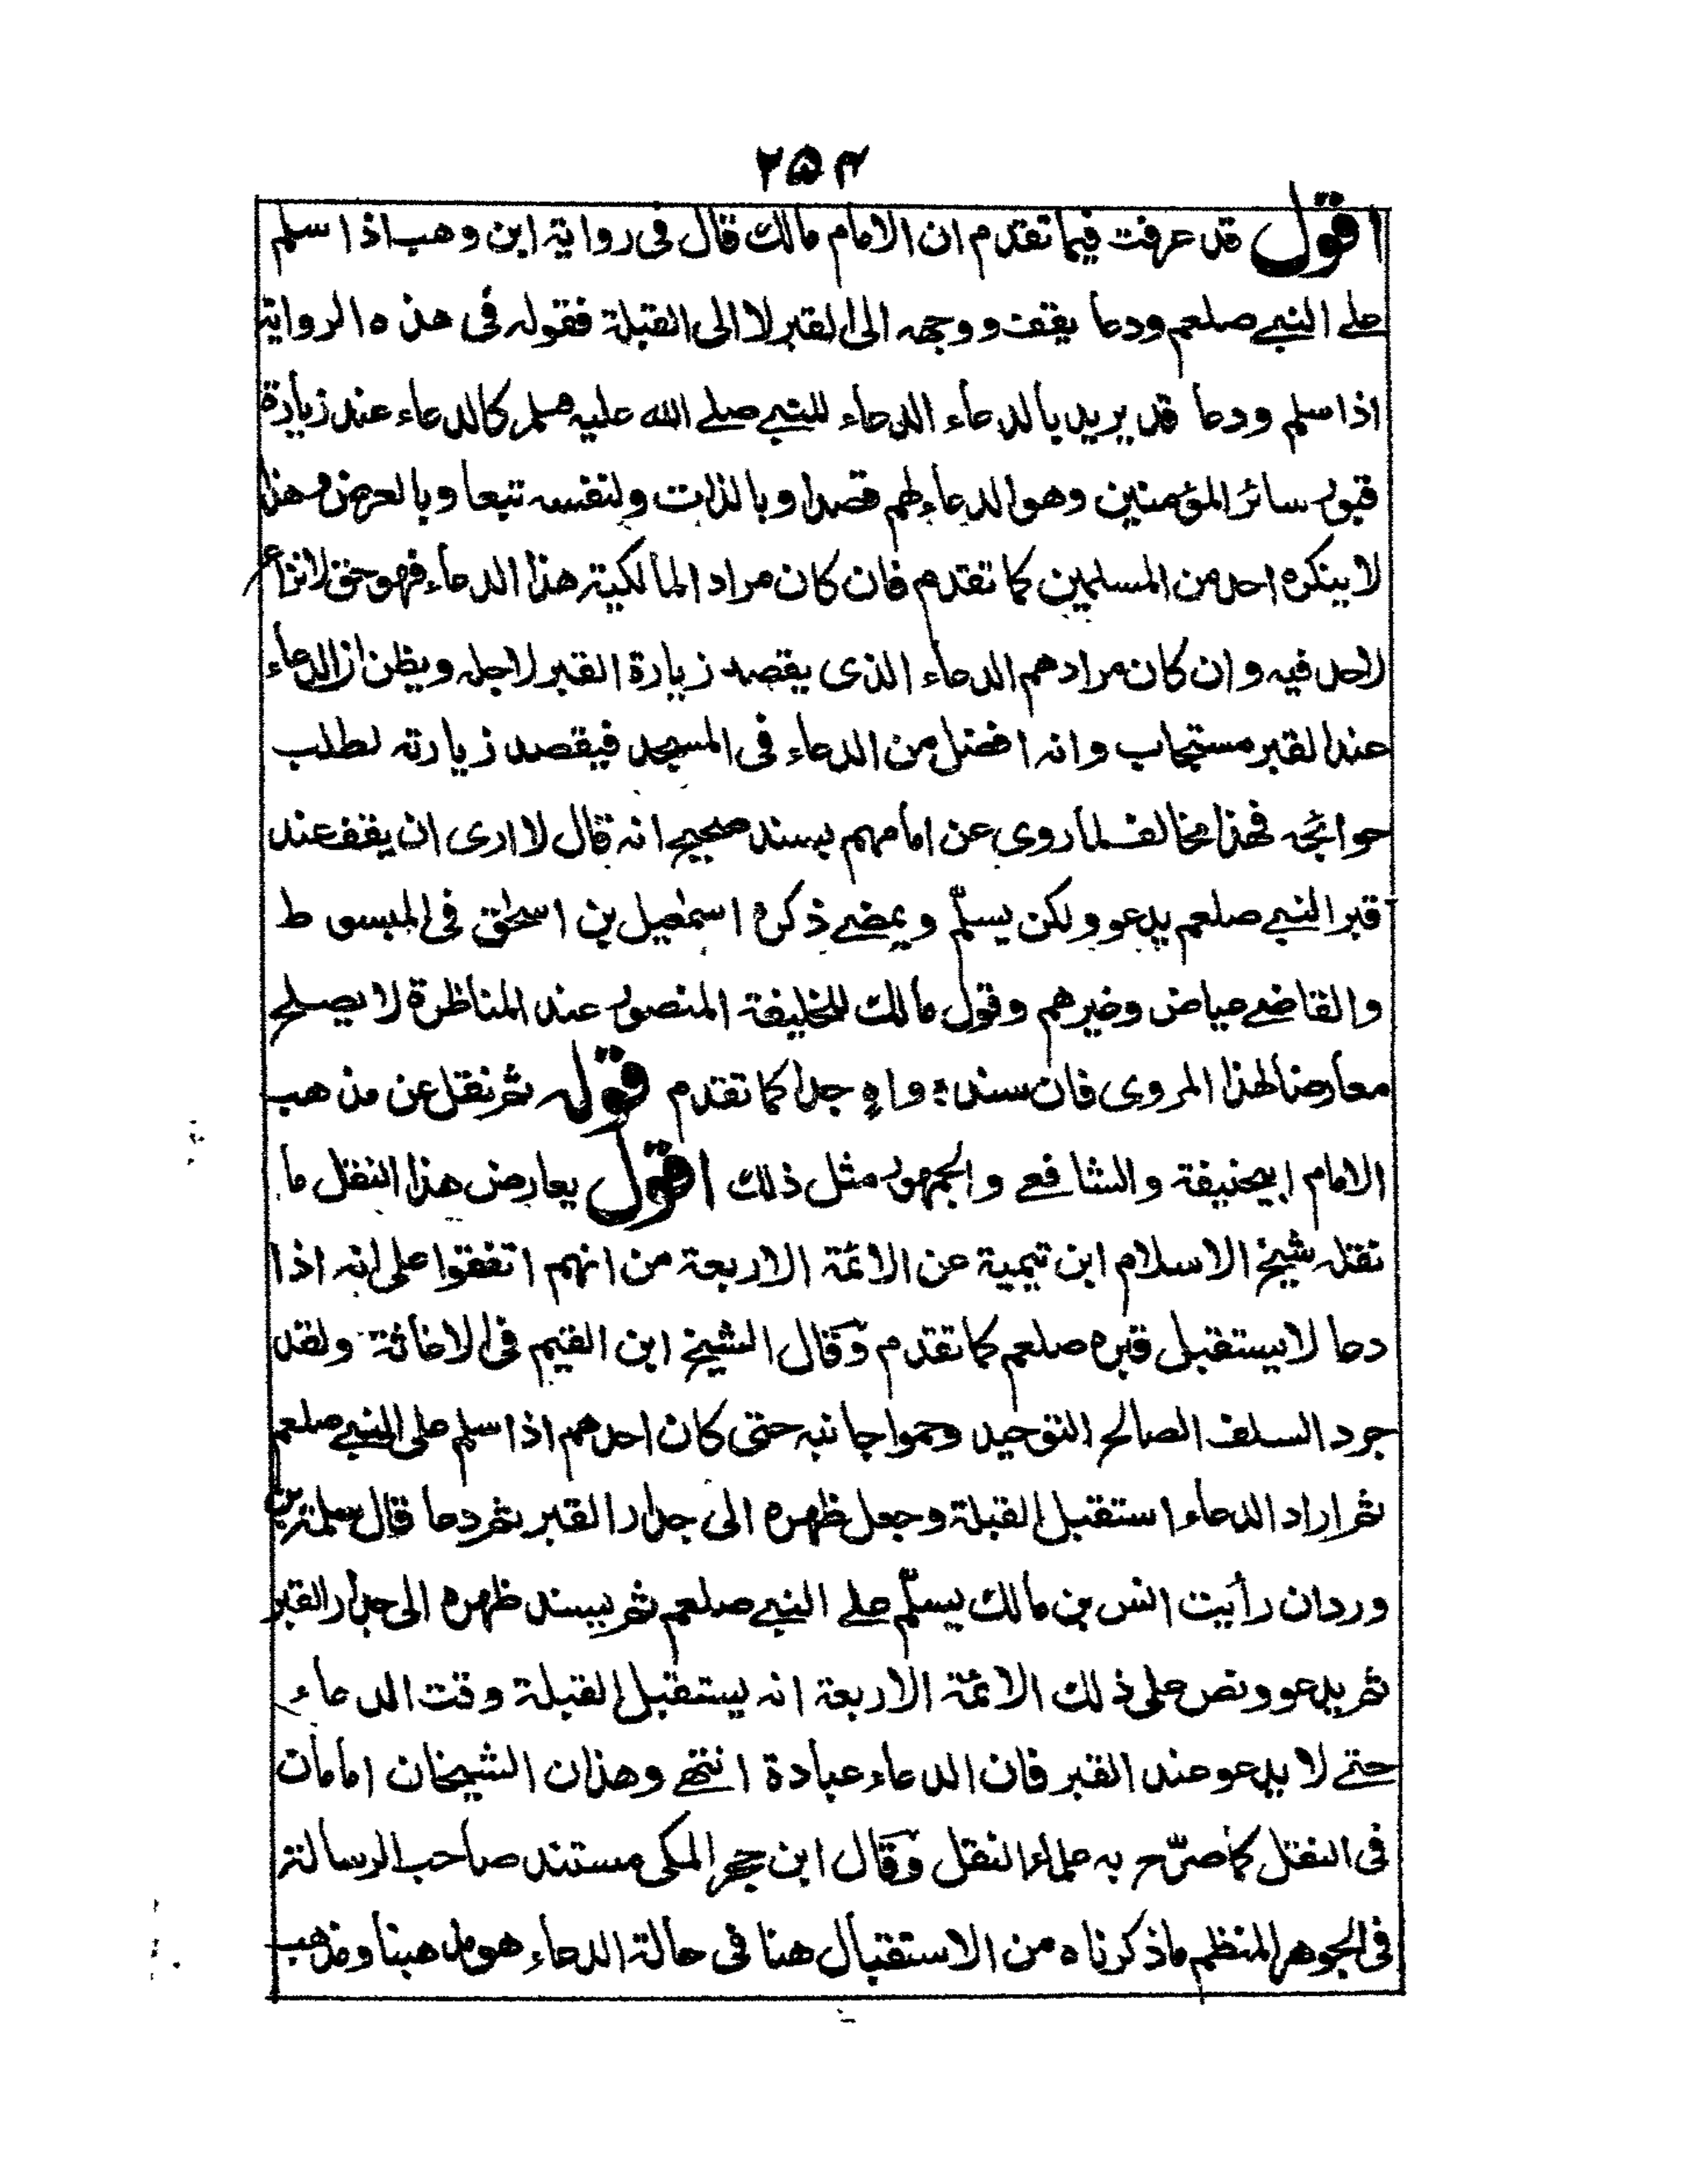 ۲۵۴
اقول قد عرفت فيما تقدم ان الامام مالك قال فى رواية ابن وهب اذا سلم
على النبي صلعم ودعا يقف ووجهه الى القبر لا الى القبلة فقوله فى هذه الرواية
اذا سلم ودعا قد يريد بالدعاء الدعاء للنبي صلے الله عليه وسلم كالدعاء عند زيارة
قبور سائر المؤمنين وهو الدعاء لهم قصدا وبالذات ولنفسه تبعا وبالعرض وهذا
لا ينكره احد من المسلمين كما تقدم فان كان مراد المالكية هذا الدعاء فهو حق لا نزاع
لاحد فيه وان كان مرادهم الدعاء الذى يقصد زيارة القبر لاجله ويظن ان الدعاء
عند القبر مستجاب وانه افضل من الدعاء فى المسجد فيقصد زيارته لطلب
حوائجه فهذا مخالف لما روى عن امامهم بسند صحيح انه قال لا ارى ان يقف عند
قبر النبي صلعم يدعو ولكن يسلّم ويمضے ذكره اسمٰعيل بن اسحٰق فى المبسوط
والقاضے عياض وغيرهم وقول مالك للخليفة المنصور عند المناظرة لا يصلح
معارضا لهذا المروى فان سنده واهٍ جدا كما تقدم قوله ثم نقل عن مذهب
الامام ابيحنيفة والشافعے والجمهور مثل ذلك اقول يعارض هذا النقل ما
نقله شيخ الاسلام ابن تيمية عن الائمة الاربعة من انهم اتفقوا على انه اذا
دعا لا يستقبل قبره صلعم كما تقدم وقال الشيخ ابن القيم فى الاغاثة ولقد
جرد السلف الصالح التوحيد وحموا جانبه حتى كان احدهم اذا سلم على النبي صلعم
ثم اراد الدعاء استقبل القبلة وجعل ظهره الى جدار القبر ثم دعا قال سلمة بن
وردان رأيت انس بن مالك يسلّم علے النبے صلعم ثم يسند ظهره الى جدار القبر
ثم يدعو ونص على ذلك الائمة الاربعة انه يستقبل القبلة وقت الدعاء
حتے لا يدعو عند القبر فان الدعاء عبادة انتهے وهذان الشيخان امامان
فى النقل كما صرّح به علماء النقل وقال ابن حجر المكى مستند صاحب الرسالة
فى الجوهر المنظم ما ذكرناه من الاستقبال هنا فى حالة الدعاء هو مذهبنا ومذهب